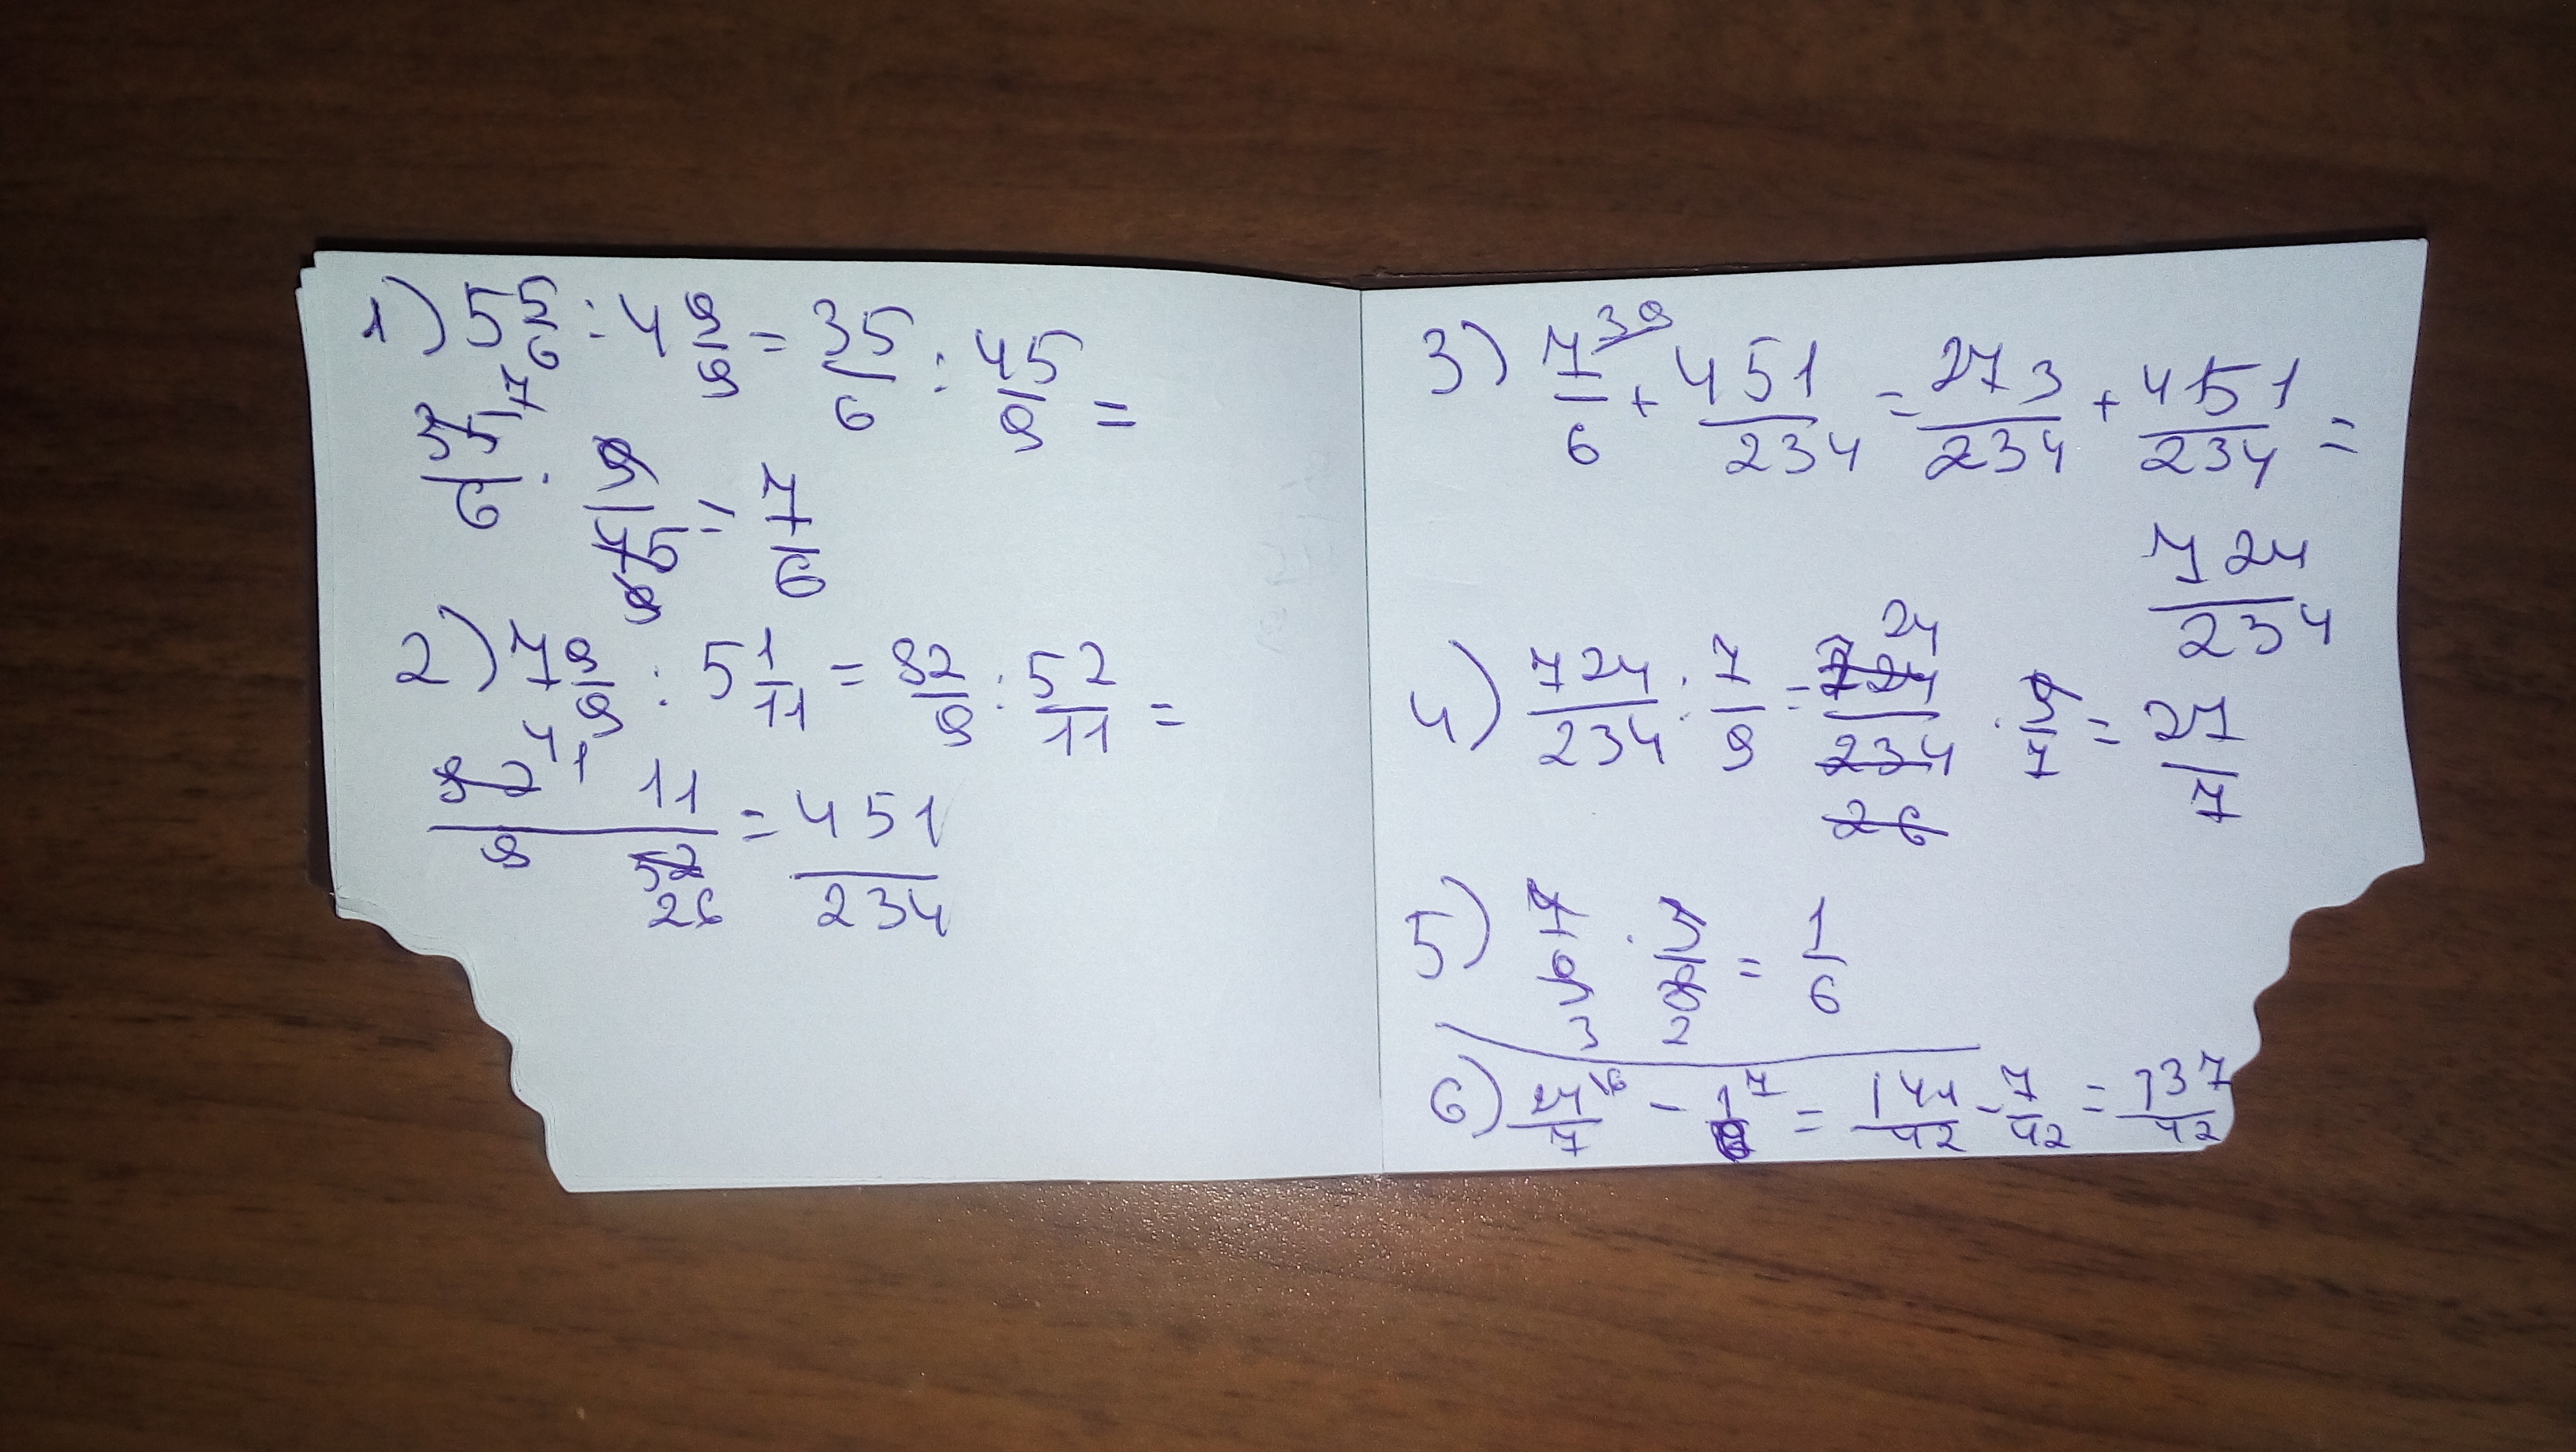 1) 5 5/6 : 4 9/9 = 35/6 : 45/9 =
35 7/6 · 9/45 9 = 7/6
2) 7 9/9 : 5 1/11 = 82/9 : 52/11 =
82 41 11/9 52 26 = 451/234
3) 7 39/6 + 451/234 = 273/234 + 451/234 =
724/234
4) 724/234 : 7/9 = 724 24/234 26 · 9/7 = 27/7
5) 7/9 3 · 3/8 2 = 1/6
6) 24 6/7 - 1 7/6 = 144/42 - 7/42 = 137/42